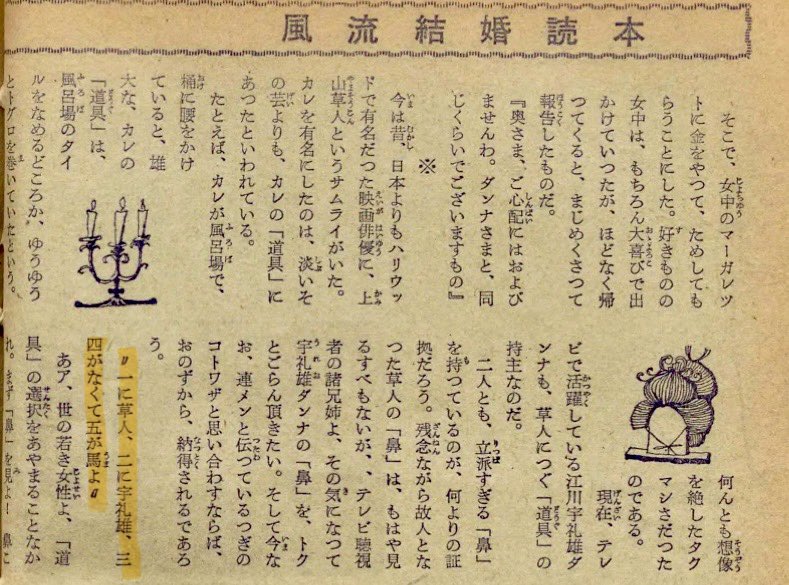 風流結婚読本
そこで、女中のマーガレツ
トに金をやつて、ためしても
らうことにした。好きものの
女中は、もちろん大喜びで出
かけていつたが、ほどなく帰
つてくると、まじめくさつて
報告したものだ。
『奥さま、ご心配にはおよび
ませんわ。ダンナさまと、同
じくらいでございますもの』
※
今は昔、日本よりもハリウッ
ドで有名だつた映画俳優に、上
山草人というサムライがいた。
カレを有名にしたのは、淡いそ
の芸よりも、カレの「道具」に
あつたといわれている。
たとえば、カレが風呂場で、
桶に腰をかけ
ていると、雄
大な、カレの
「道具」は、
風呂場のタイ
ルをなめるどころか、ゆうゆう
とトグロを巻いていたという。
何んとも想像
を絶したタク
マシさだつた
のである。
現在、テレ
ビで活躍している江川宇礼雄ダ
ンナも、草人につぐ「道具」の
持主なのだ。
二人とも、立派すぎる「鼻」
を持つているのが、何よりの証
拠だろう。残念ながら故人とな
つた草人の「鼻」は、もはや見
るすべもないが、、テレビ聴視
者の諸兄姉よ、その気になつて
宇礼雄ダンナの「鼻」を、トク
とごらん頂きたい。そして今な
お、連メンと伝つているつぎの
コトワザと思い合わすならば、
おのずから、納得されるであろ
う。
〃一に草人、二に宇礼雄、三
四がなくて五が馬よ〃
あア、世の若き女性よ、「道
具」の選択をあやまることなか
れ。まず「鼻」を見よ！ 鼻に